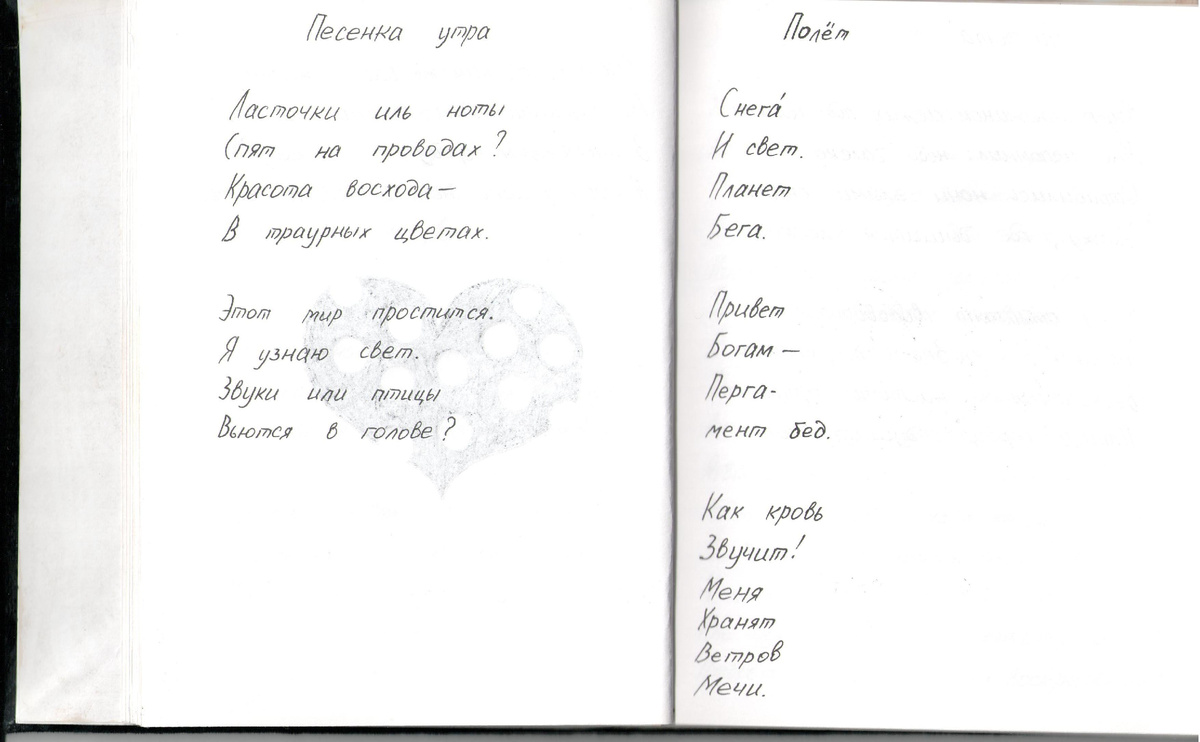 Песенка утра
Ласточки иль ноты
Спят на проводах?
Красота восхода —
В траурных цветах.
Этот мир простится.
Я узнаю свет.
Звуки или птицы
Вьются в голове?
Полёт
Снега́
И свет.
Планет
Бега.
Привет
Богам —
Перга-
мент бед.
Как кровь
Звучит!
Меня
Хранят
Ветров
Мечи.